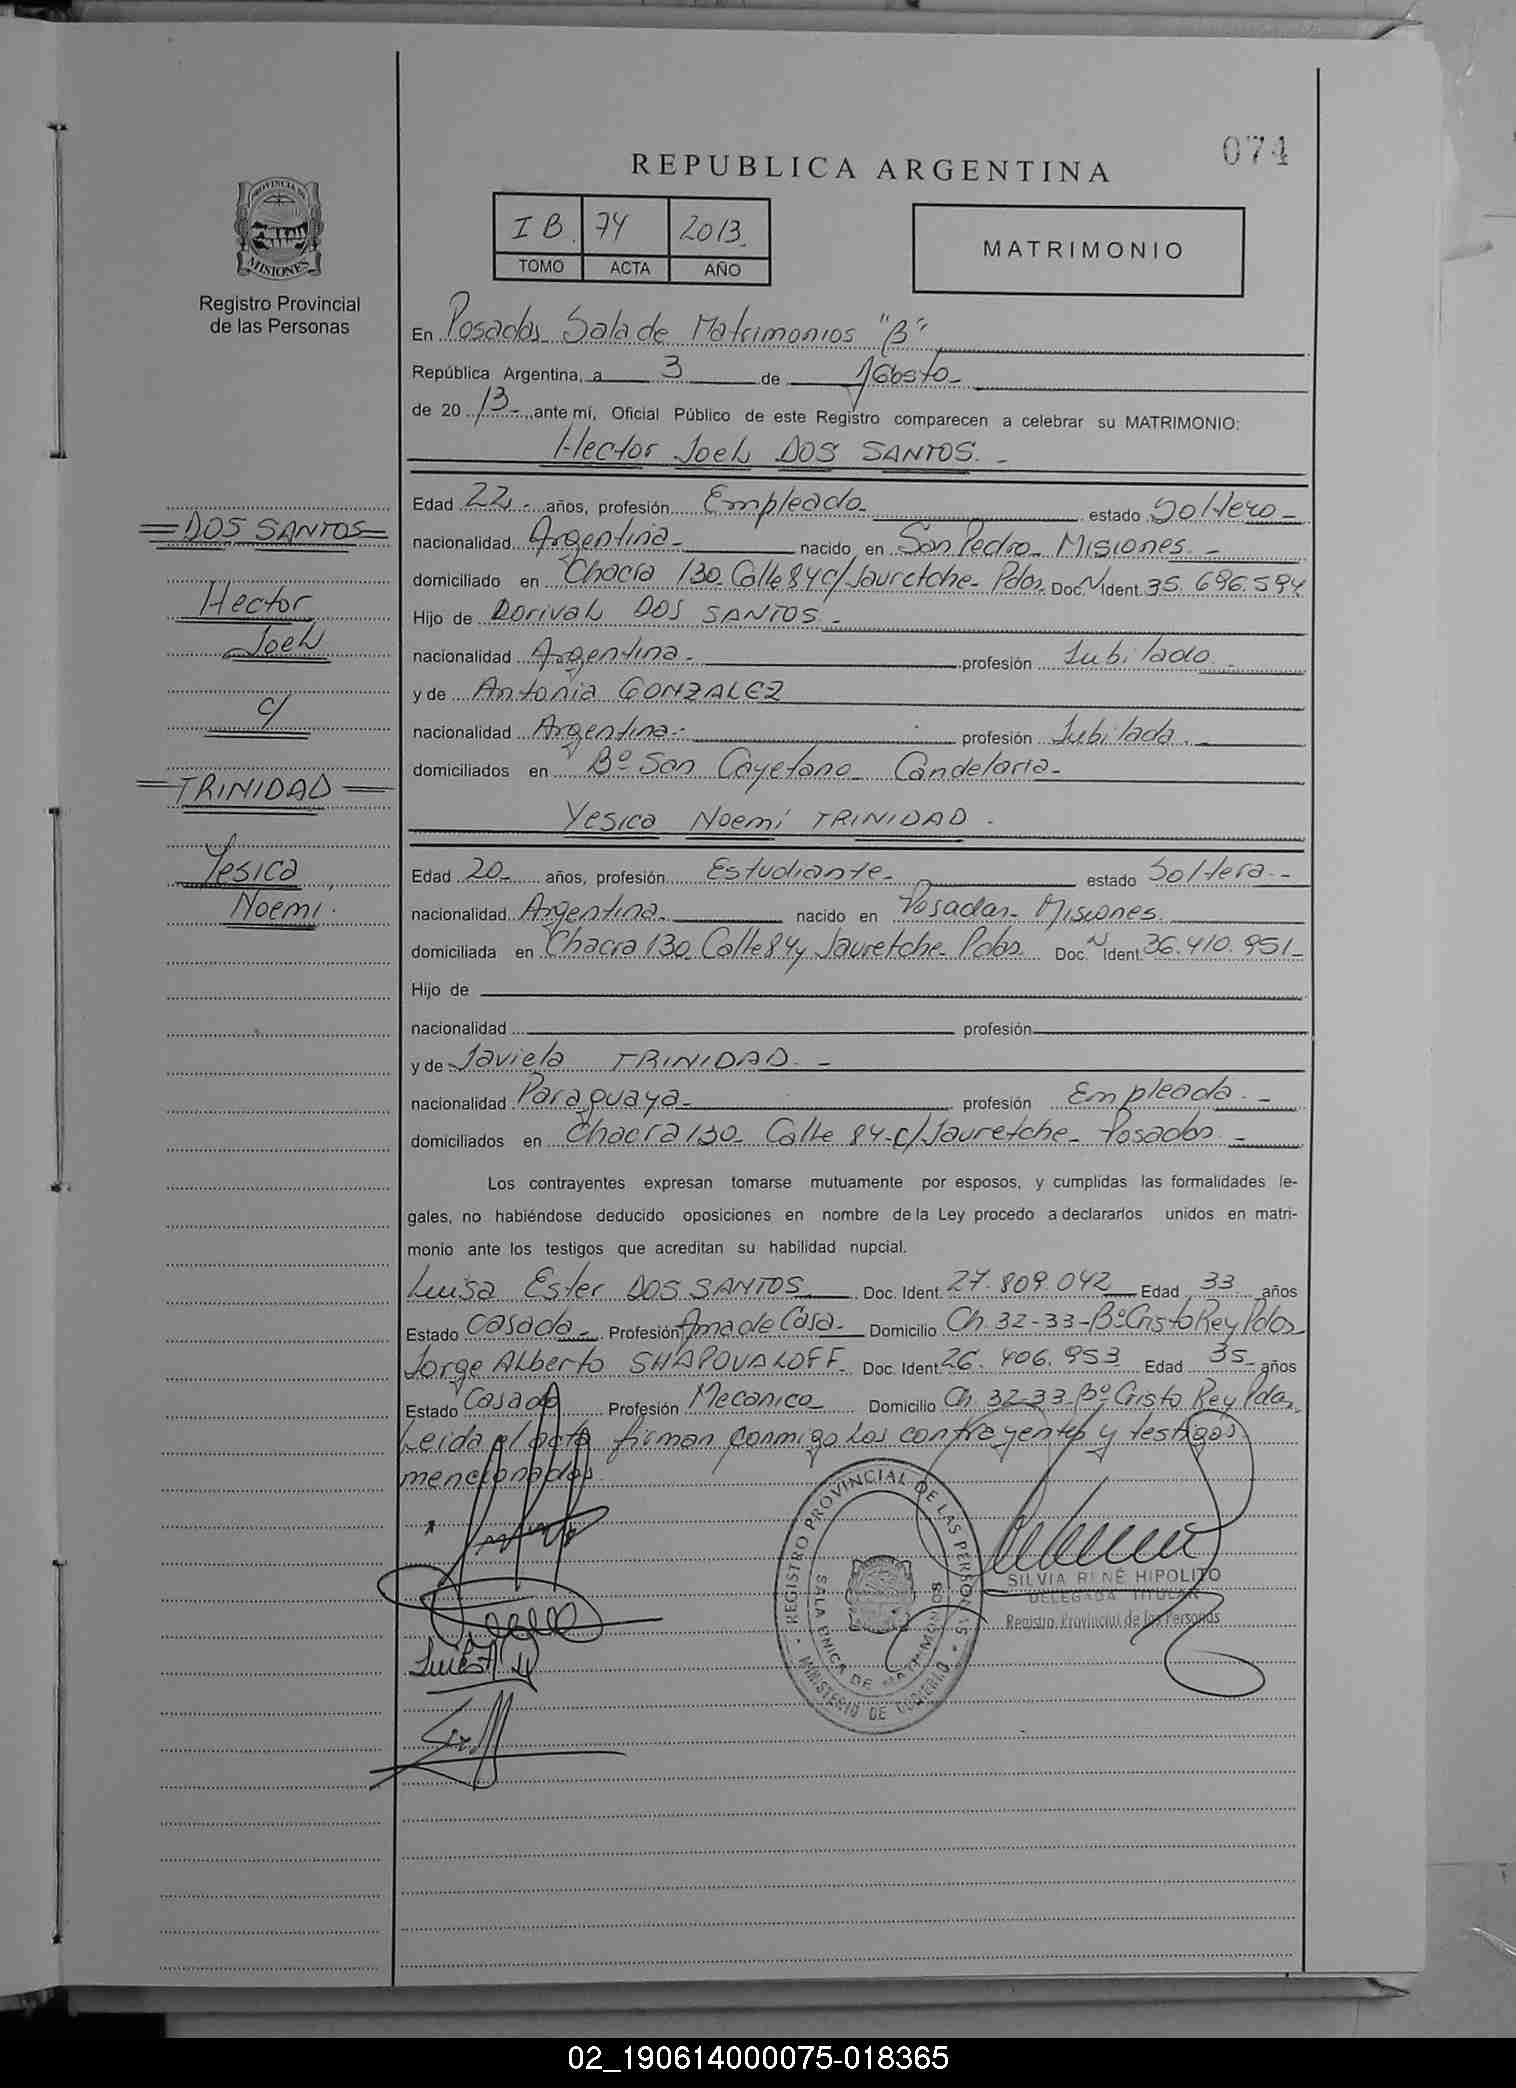 074
REPUBLICA ARGENTINA
I B. 74 2013.
TOMO ACTA AÑO
MATRIMONIO
PROVINCIA DE
MISIONES
Registro Provincial
de las Personas
En Posadas Sala de Matrimonios "B"
República Argentina, a 3 de Agosto
de 20 13 ante mí, Oficial Público de este Registro comparecen a celebrar su MATRIMONIO:
Hector Joel DOS SANTOS.
Edad 22 años, profesión Empleado estado Soltero
nacionalidad Argentina nacido en San Pedro Misiones.
domiciliado en Chacra 130 Calle 84 c/ Jauretche Pdas. Doc. N Ident. 35.696.594
Hijo de Dorival DOS SANTOS
nacionalidad Argentina profesión Jubilado
y de Antonia GONZALEZ
nacionalidad Argentina profesión Jubilada.
domiciliados en Bº San Cayetano Candelaria
Yesica Noemi TRINIDAD.
Edad 20 años, profesión Estudiante estado Soltera
nacionalidad Argentina nacido en Posadas Misiones.
domiciliada en Chacra 130 Calle 84 y Jauretche Pdas. Doc. N Ident. 36.410.951
Hijo de
nacionalidad profesión
y de Taviela TRINIDAD.
nacionalidad Paraguaya profesión Empleada.
domiciliados en Chacra 130 Calle 84 c/ Jauretche Posadas
Los contrayentes expresan tomarse mutuamente por esposos, y cumplidas las formalidades le-
gales, no habiéndose deducido oposiciones en nombre de la Ley procedo a declararlos unidos en matri-
monio ante los testigos que acreditan su habilidad nupcial.
Luisa Ester DOS SANTOS Doc. Ident. 27.809.042 Edad 33 años
Estado Casada Profesión Ama de Casa Domicilio Ch. 32-33-Bº Cristo Rey Pdas
Jorge Alberto SHAPOVALOFF Doc. Ident. 26.406.953 Edad 35 años
Estado Casado Profesión Mecanico Domicilio Ch. 32-33 Bº Cristo Rey Pdas.
Leida el acta firman conmigo los contrayentes y testigos
mencionados
REGISTRO PROVINCIAL DE LAS PERSONAS
SALA UNICA DE MATRIMONIOS
MINISTERIO DE GOBIERNO
SILVIA RENÉ HIPOLITO
DELEGADA TITULAR
Registro Provincial de las Personas
DOS SANTOS
Hector
Joel
c/
TRINIDAD
Yesica
Noemi.
02_190614000075-018365